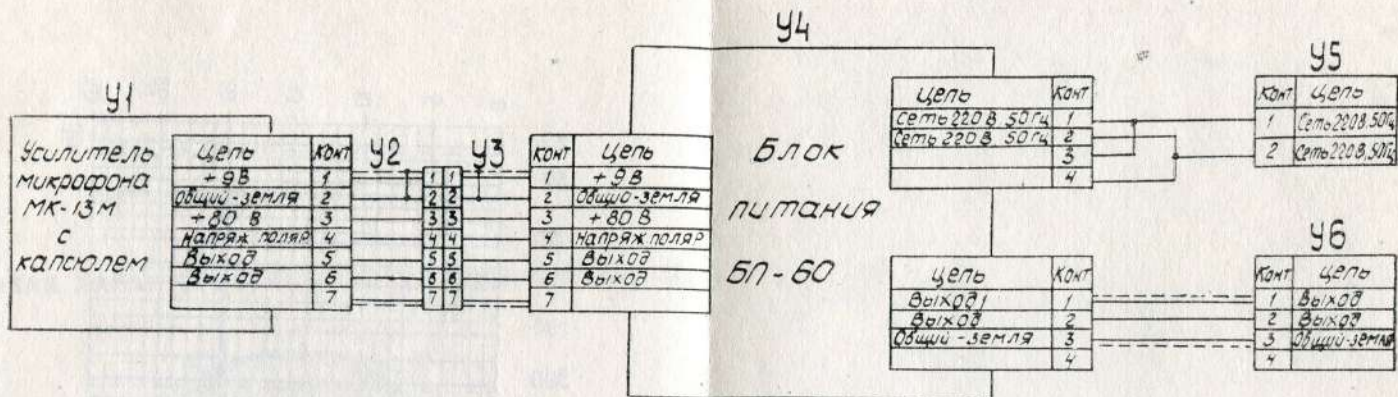 У1
Усилитель
микрофона
МК-13М
с
капсюлем
Цепь Конт
+9В 1
Общий-земля 2
+80 В 3
Напряж поляр 4
Выход 5
Выход 6
7
У2
У3
1 1
2 2
3 3
4 4
5 5
6 6
7 7
Конт Цепь
1 +9В
2 Общий-земля
3 +80В
4 Напряж поляр
5 Выход
6 Выход
7
У4
Блок
питания
БП-60
Цепь Конт
Сеть 220В 50Гц 1
Сеть 220В 50Гц 2
3
4
Цепь Конт
Выход 1
Выход 2
Общий-земля 3
4
У5
Конт Цепь
1 Сеть 220В, 50Гц
2 Сеть 220В, 50Гц
У6
Конт Цепь
1 Выход
2 Выход
3 Общий-земля
4